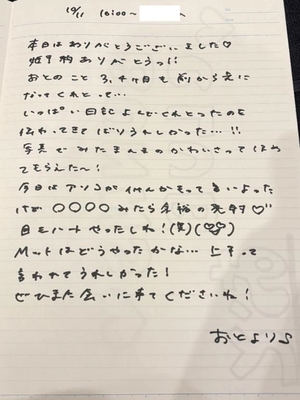 10/11 10:00〜
本日はありがとうございました♡
姫予約ありがとうっ!!
おとのこと3、4ヶ月も前から気に
なってくれとって…
いっぱい日記よんでくれとったのも
伝わってきてばりうれしかった…!!
写真でみたまんまのかわいさってほめ
てもらえた〜!
今日はアソコが
けど〇〇〇〇みたら余裕の発射♡
目もハートやったしね!(笑)(♡♡)
Mットはどうやったかな…上手って
言われてうれしかった!
ぜひまた会いに来てくださいね!
おとより♪